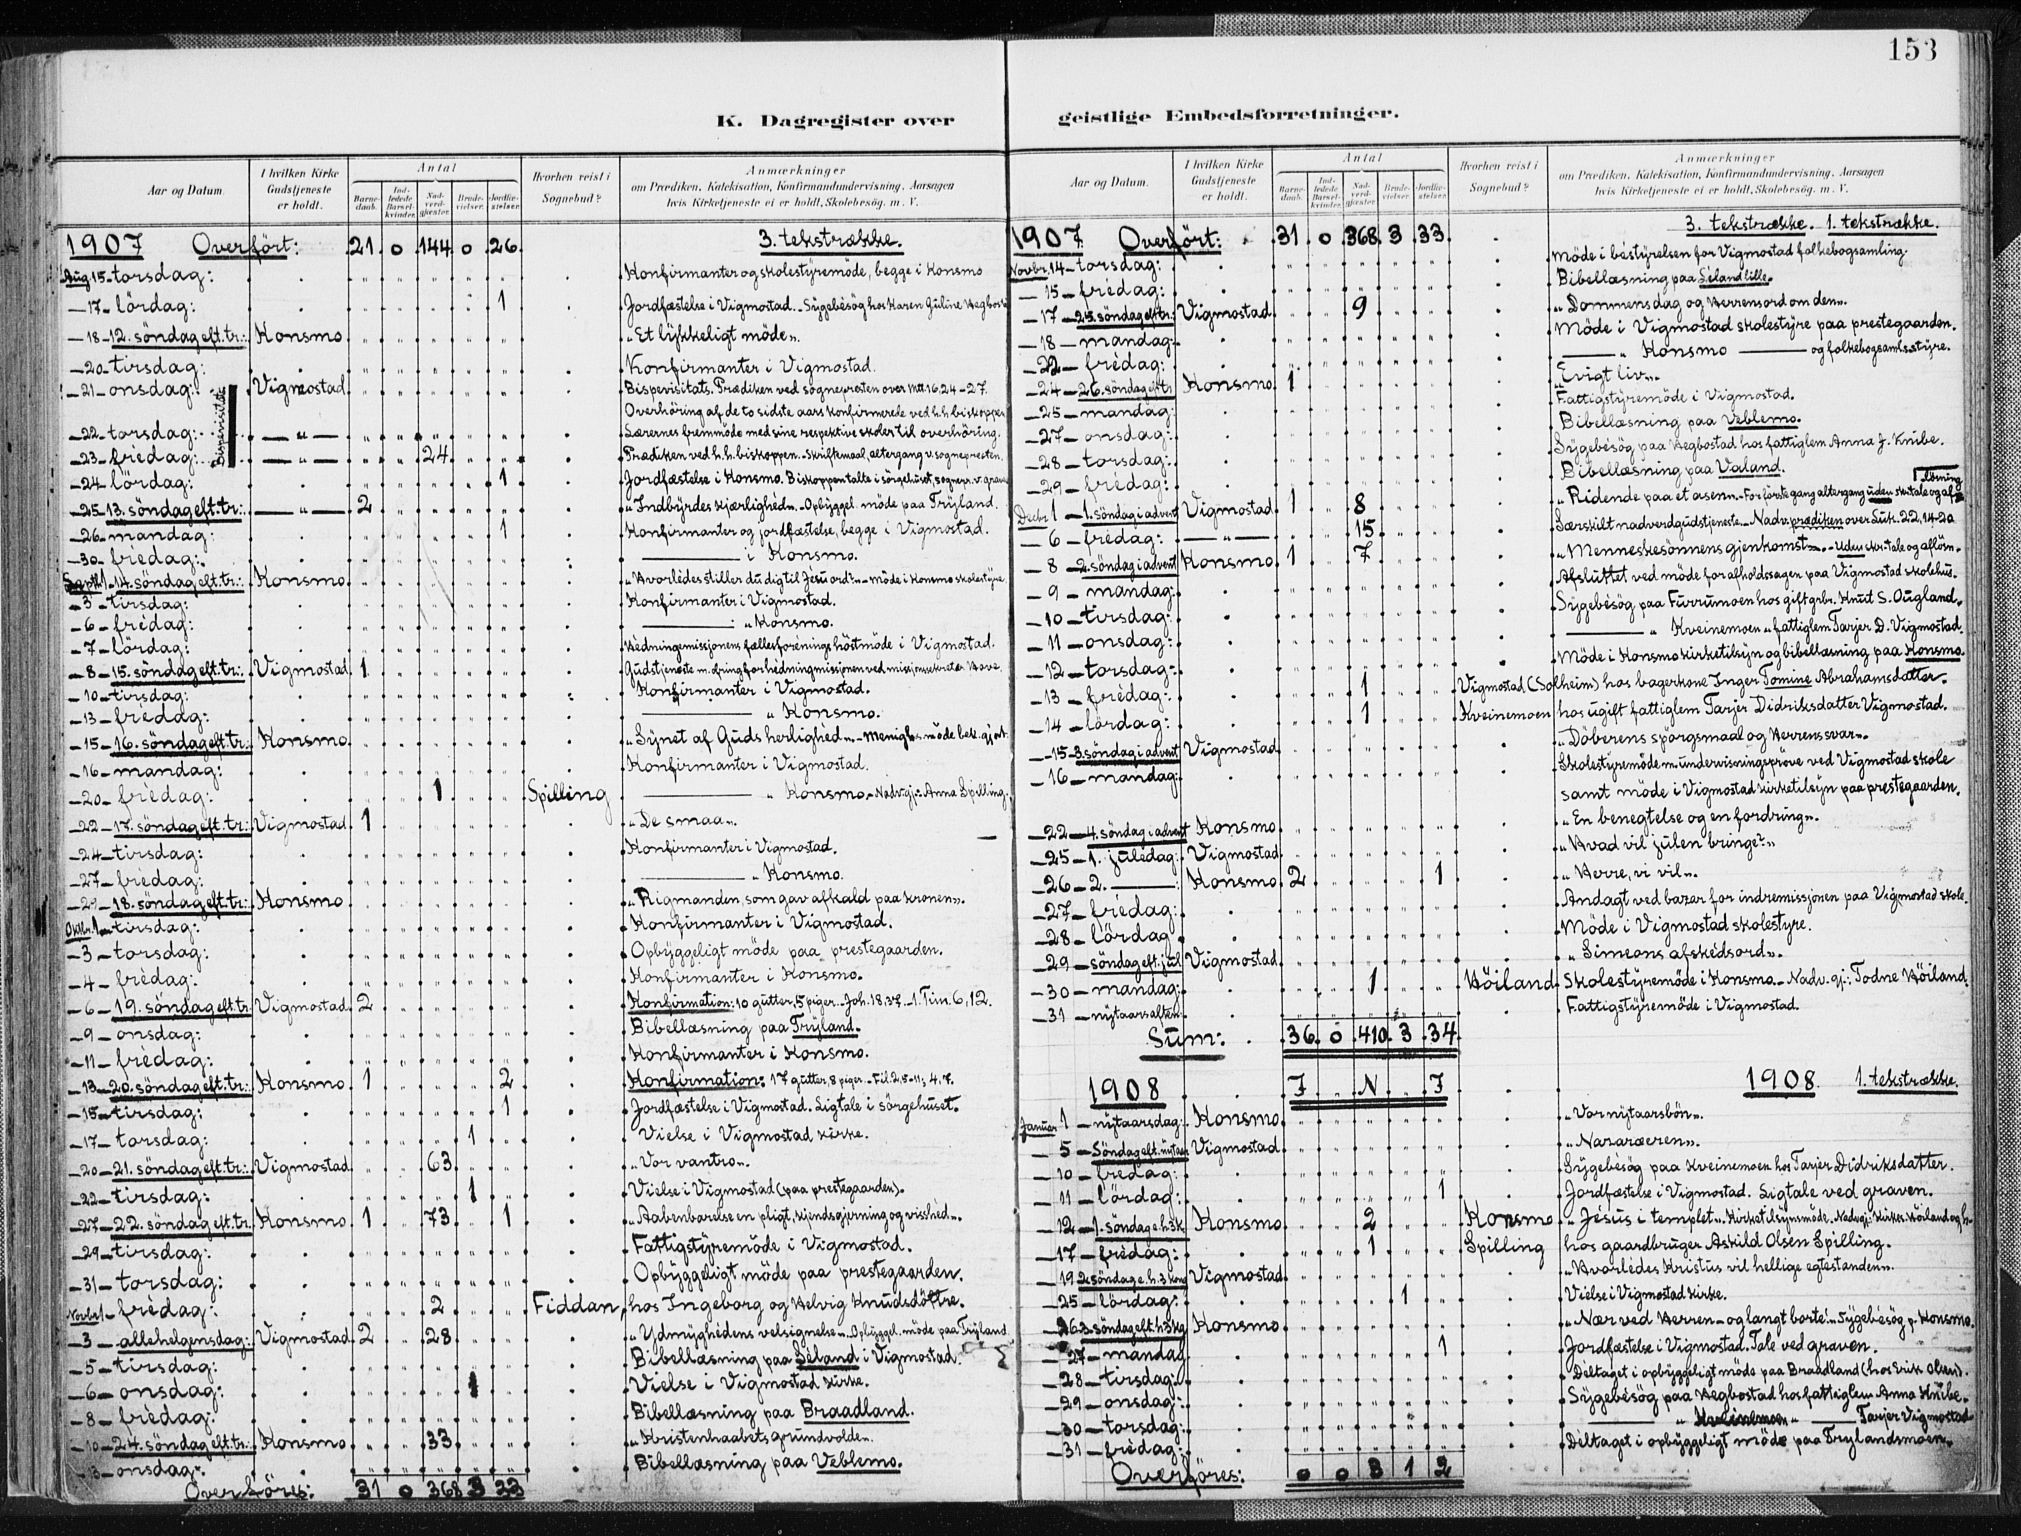 153
K. Dagregister over
Aar og Datum.
I hvilken Kirke Gudstjeneste er holdt.
Antal
Barnedaab.
Indledede Barselkvinder.
Nadverdgjæster.
Brudevielser.
Jordfæstelser.
Hvorhen reist i Sognebud?
Anmærkninger
om Prædiken, Katekisation, Konfirmandundervisning, Aarsagen
hvis Kirketjeneste ei er holdt, Skolebesøg, m. V.
1907 Overført: 21 0 144 0 26 3. tekstrække.
Aug. 15 - torsdag: Konfirmanter og skolestyremöde, begge i Konsmo
- 17 - lördag: 1 Jordfæstelse i Vigmostad. - Sygebésög hos Karen Guline Hegbost
- 18 - 12. söndag eft. tr.: Konsmo „Et lykkeligt möde".
- 20 - tirsdag: Konfirmanter i Vigmostad.
- 21 - onsdag: Bispevisitats Vigmostad Bispevisitats. Prædiken ved sognepresten over Mtt 16.24-27.
Overhöring af de to sidste aars konfirmerede ved h.h. biskoppen
- 22 - torsdag: — „ — Lærernes fremmöde med sine respektive skoler til overhöring.
- 23 - fredag: — „ — 24 Prædiken ved h.h. biskoppen. Skriftemaal, altergang v. sognepresten.
- 24 - lördag: 1 Jordfæstelse i Konsmo. Biskoppen talte i sörgehuset, sognepr. v. grave
- 25 - 13. söndag eft. tr.: — „ — 2 „Indbyrdes kjærlighéd". Opbyggel. möde paa Tryland.
- 26 - mandag: 1 Konfirmanter og jordfæstelse, begge i Vigmostad.
- 30 - fredag: ——— i Konsmo.
Septb. 1 - 14. söndag eft. tr.: Konsmo „Hvorlédes stiller du dig til Jesu ord?" - möde i Konsmo skolestyre.
- 3 - tirsdag: Konfirmanter i Vigmostad.
- 6 - fredag: ——— „ Konsmo.
- 7 - lördag: Hédningemissjonens fællesforenings höstmöde i Vigmostad.
- 8 - 15. söndag eft. tr.: Vigmostad 1 Gudstjeneste m. ofring for hedningmissjonen ved missjonssekretær Hove.
- 10 - tirsdag: Konfirmanter i Vigmostad.
- 13 - fredag: ——— „ Konsmo.
- 15 - 16. söndag eft. tr.: Konsmo „Synet af Guds herlighed". - Menighs. möde bek. gjort.
- 16 - mandag: Konfirmanter i Vigmostad.
- 20 - fredag: 1 Spilling ——— „ Konsmo. - Nadv. gj.: Anna Spilling.
- 22 - 17. söndag eft. tr.: Vigmostad 1 „De smaa".
- 24 - tirsdag: Konfirmanter i Vigmostad.
- 27 - fredag: ——— „ Konsmo.
- 29 - 18. söndag eft. tr.: Konsmo „Rigmanden, som gav afkald paa kronen".
Oktbr. 1 - tirsdag: Konfirmanter i Vigmostad.
- 3 - torsdag: Opbyggeligt möde paa prestegaarden.
- 4 - fredag: Konfirmanter i Konsmo.
- 6 - 19. söndag eft. tr.: Vigmostad 2 Konfirmation: 10 gutter, 5 piger. - Joh. 18.37. - 1. Tim. 6,12.
- 9 - onsdag: Bibellæsning paa Tryland.
- 11 - fredag: Konfirmanter i Konsmo.
- 13 - 20. söndag eft. tr.: Konsmo 1 2 Konfirmation: 17 gutter, 8 piger. - Fil. 2,5-11; 4,7.
- 15 - tirsdag: 1 Jordfæstelse i Vigmostad. Ligtale i sörgehuset.
- 17 - torsdag: 1 Vielse i Vigmostad kirke.
- 20 - 21. söndag eft. tr.: Vigmostad 63 „Vor vantro".
- 22 - tirsdag: 1 Vielse i Vigmostad (paa prestegaarden).
- 27 - 22. söndag eft. tr. Konsmo 1 73 1 „Aabenbarelse en pligt, kjendsgjerning og visshéd".
- 29 - tirsdag: Fattigstyremöde i Vigmostad.
- 31 - torsdag: Opbyggeligt möde paa prestegaarden.
Novbr. 1 - fredag: 2 Fiddan, hos Ingeborg og Helvig Knudsdöttre.
- 3 - allehelgensdag: Vigmostad 2 28 „Ydmyghédens velsignelse". Opbyggel. möde paa Tryland
- 5 - tirsdag: Bibellæsning paa Séland i Vigmostad.
- 6 - onsdag: 1 Vielse i Vigmostad kirke.
- 8 - fredag: Bibellæsning paa Braadland.
- 10 - 24. söndag eft. tr.: Konsmo 33 „Kristenhaabets grundvolde".
- 13 - onsdag: Bibellæsning paa Veblemo.
Overföres: 31 0 368 3 33
geistlige Embedsforretninger.
Aar og Datum.
I hvilken Kirke Gudstjeneste er holdt.
Antal
Barnedaab.
Indledede Barselkvinder.
Nadverdgjæster.
Brudevielser.
Jordfæstelser.
Hvorhen reist i Sognebud?
Anmærkninger
om Prædiken, Katekisation, Konfirmandundervisning, Aarsagen
hvis Kirketjeneste ei er holdt, Skolebesøg, m. V.
3. tekstrække. 1. tekstrække.
1907 Overfört: 31 0 368 3 33
Novbr. 14 - torsdag: Möde i bestyrelsen for Vigmostad folkebogsamling.
- 15 - fredag: Bibellæsning paa Séland lille.
- 17 - 25. söndag eft. tr.: Vigmostad 9 „Dommens dag og Herrens ord om den".
- 18 - mandag: Möde i Vigmostad skolestyre paa prestegaarden.
- 22 - fredag: ——— „ Konsmo ——— og folkebogsamls. styre.
- 24 - 26. söndag eft. tr. Konsmo 1 „Evigt liv".
- 25 - mandag: Fattigstyremöde i Vigmostad.
- 27 - onsdag: Bibellæsning paa Veblemo.
- 28 - torsdag: Sygebésög paa Hegbostad hos fattiglem Anna J. Knibe.
- 29 - fredag: Bibellæsning paa Valand.
Decbr. 1 - 1. söndag i advent Vigmostad 1 8 „Ridende paa et asen". - For förste gang altergang uden skr. tale og aflösning
- 6 - fredag: — „ — 15 Særskilt nadverdgudstjeneste. - Nadv. prædiken over Luk. 22,14-20
- 8 - 2. söndag i advent Konsmo 1 7 „Menneskesönnens gjenkomst". - Uden skr. tale og aflösn.
- 9 - mandag: Afsluttet ved möde for afholdssagen paa Vigmostad skolehus.
- 10 - tirsdag: Sygebésög paa Furrumoen hos giftgbr. Knut S. Ougland.
- 11 - onsdag: ——— „ Kveinemoen „ fattiglem Tarjer D. Vigmostad.
- 12 - torsdag: Möde i Konsmo kirketilsyn og bibellæsning paa Konsmo.
- 13 - fredag: 1 Vigmostad (Solheim) hos bagerkone Inger Tomine Abrahamsdatter.
- 14 - lördag: 1 Kveinemoen hos ugift fattiglem Tarjer Didriksdatter Vigmostad.
- 15 - 3. söndag i advent Vigmostad „Döberens spörgsmaal og Herrens svar".
- 16 - mandag: Skolestyremöde m. undervisningspröve ved Vigmostad skole
samt möde i Vigmostad kirketilsyn paa prestegaarden.
- 22 - 4. söndag i advent Konsmo „En benegtelse og en fordring".
- 25 - 1. juledag: Vigmostad „Hvad vil julen bringe?"
- 26 - 2. ——— : Konsmo 2 1 „Herre, vi vil".
- 27 - fredag: Andagt ved bazar for indremissjonen paa Vigmostad skole
- 28 - lördag Möde i Vigmostad skolestyre.
- 29 - söndag eft. jul Vigmostad „Simeons afskédsord".
- 30 - mandag: 1 Höiland Skolestyremöde i Konsmo. - Nadv. gj.: Todne Höiland.
- 31 - nytaarsaften: Fattigstyremöde i Vigmostad.
Sum: 36 0 410 3 34
1908 J N J 1908 1. tekstrække.
Januar 1 - nytaarsdag: Konsmo „Vor nytaarsbön".
- 5 - Söndag eft. nytaar Vigmostad „Nazaræeren".
- 10 - fredag: Sygebésög paa Kveinemoen hos Tarjer Didriksdatter.
- 11 - lördag: 1 Jordfæstelse i Vigmostad. Ligtale ved graven.
- 12 - 1. söndag e. h. 3 k. Konsmo 2 Konsmo „Jésus i templet". Kirketilsynsmöde. Nadv. gj.:
- 17 - fredag: 1 Spilling hos gaardbruger Askild Olsen Spilling.
- 19 2. söndag e. h. 3 kong Vigmostad „Hvorlédes Kristus vil hellige egtestanden".
- 25 - lördag: 1 Vielse i Vigmostad kirke.
- 26 3. söndag eft. h. 3 kg Konsmo „Nær ved Herren - og langt borte". Sygebésög p. Konsmo.
- 27 - mandag 1 Jordfæstelse i Vigmostad. Tale ved graven.
- 28 - tirsdag: Deltaget i opbyggeligt möde paa Braadland (hos Erik Olsen).
- 29 - onsdag: Sygebésög paa Hegbostad hos fattiglem Anna Knibe.
- 30 - torsdag: ——— „ Kveinemoen „ ——— Tarjer Vigmostad
- 31 - fredag: Déltaget i opbyggeligt möde paa Trylandsmoen.
Overföres: 0 0 3 1 2